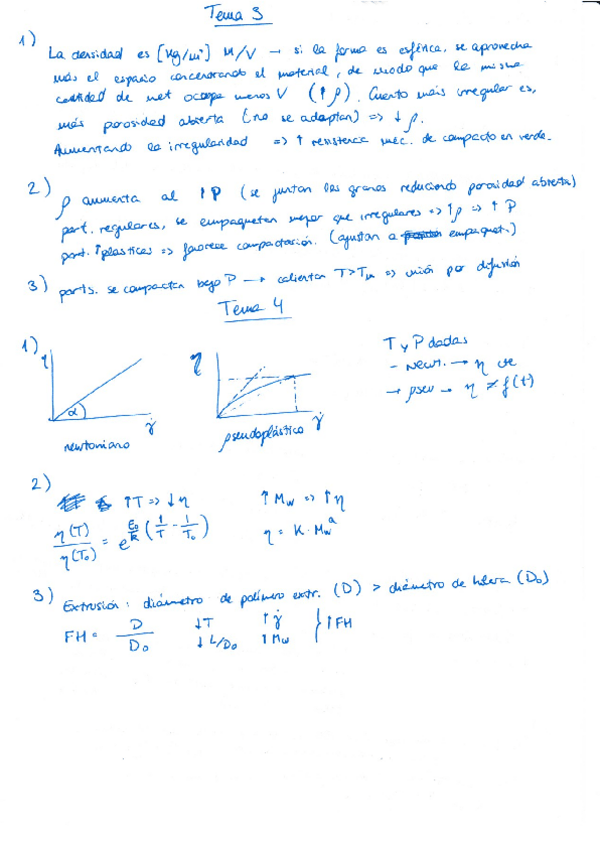 Tema 3
1) La densidad es [Kg/m³] M/V → si la forma es esférica, se aprovecha
más el espacio concentrando el material, de modo que la misma
cantidad de mat ocupa menos V (↑ρ). Cuanto más irregular es,
más porosidad abierta (no se adaptan) => ↓ρ.
Aumentando la irregularidad => ↑ resistencia mec. de compacto en verde.
2) ρ aumenta al ↑P (se juntan los granos reduciendo porosidad abierta)
part. regulares, se empaquetan mejor que irregulares => ↑ρ => ↑P
part. ↑plasticas => favorece compactación. (ajustan a empaquet.)
3) parts. se compactan bajo P → calientan T>Tm => unión por difusión
Tema 4
1) η γ̇ α newtoniano
η γ̇ pseudoplástico
T y P dadas
- newt. → η cte
→ pseu → η ≠ f(t)
2) ↑T => ↓η ↑Mw => ↑η
η(T)/η(T₀) = e^(E₀/R (1/T - 1/T₀)) η = K · Mw^a
3) Extrusión: diámetro de polímero extr. (D) > diámetro de hilera (D₀)
FH = D/D₀ ↓T ↑γ̇ } ↑FH
↓L/D₀ ↑Mw